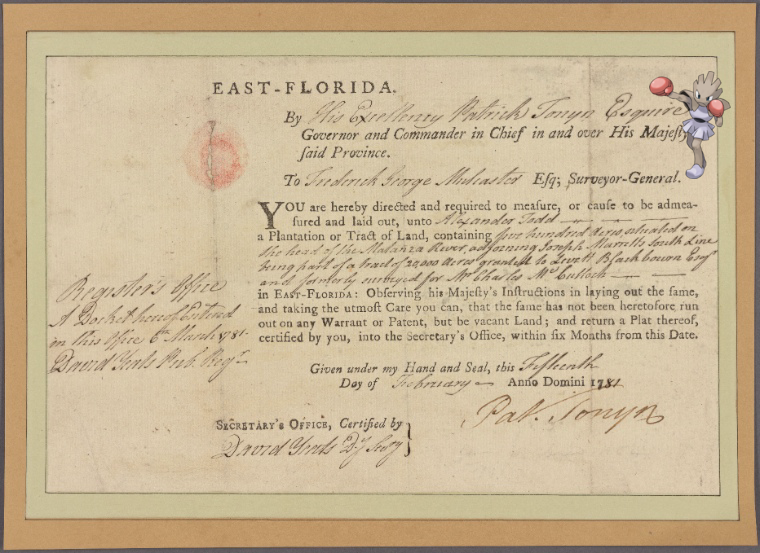 EAST-FLORIDA.
By His Excellency Patrick Tonyn Esquire
Governor and Commander in Chief in and over His Majesty
said Province.
To Frederick George Mulcaster Esq; Surveyor-General.
YOU are hereby directed and required to measure, or cause to be admea-
sured and laid out, unto Alexander Todd
a Plantation or Tract of Land, containing four hundred acres situated on
the head of the Matanza River, adjoining Joseph Marretts South Line
being part of a tract of 20,000 acres granted to Levett Blackbourn Esqr
and formerly surveyed for Mr Charles McCulloch
in EAST-FLORIDA: Observing his Majesty's Instructions in laying out the same,
and taking the utmost Care you can, that the same has not been heretofore run
out on any Warrant or Patent, but be vacant Land; and return a Plat thereof,
certified by you, into the Secretary's Office, within six Months from this Date.
Given under my Hand and Seal, this Fifteenth
Day of February Anno Domini 1781
Pat. Tonyn
SECRETARY'S OFFICE, Certified by
David Yeats Dy Secry
Register's Office
A Docket hereof Entered
in this Office 6th March 1781
David Yeats Pub. Regr